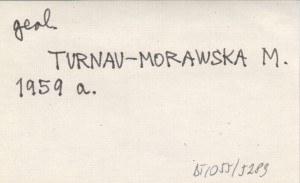 geol.
TURNAU-MORAWSKA M.
1959 a.
/055/5289